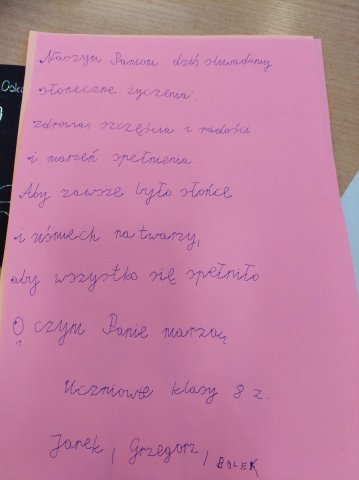 Naszym Paniom dziś składamy
słoneczne życzenia:
zdrowia, szczęścia i radości
i marzeń spełnienia.
Aby zawsze było słońce
i uśmiech na twarzy,
aby wszystko się spełniło
O czym Panie marzą
Uczniowie klasy 8 z.
Janek, Grzegorz, BOLEK
Oska